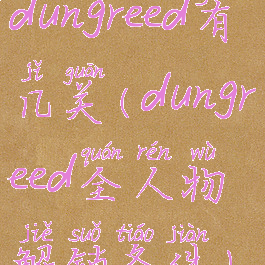 dungreed有
jǐ guān
几关(dungr
quán rén wù
eed全人物
jiě suǒ tiáo jiàn
解锁条件)